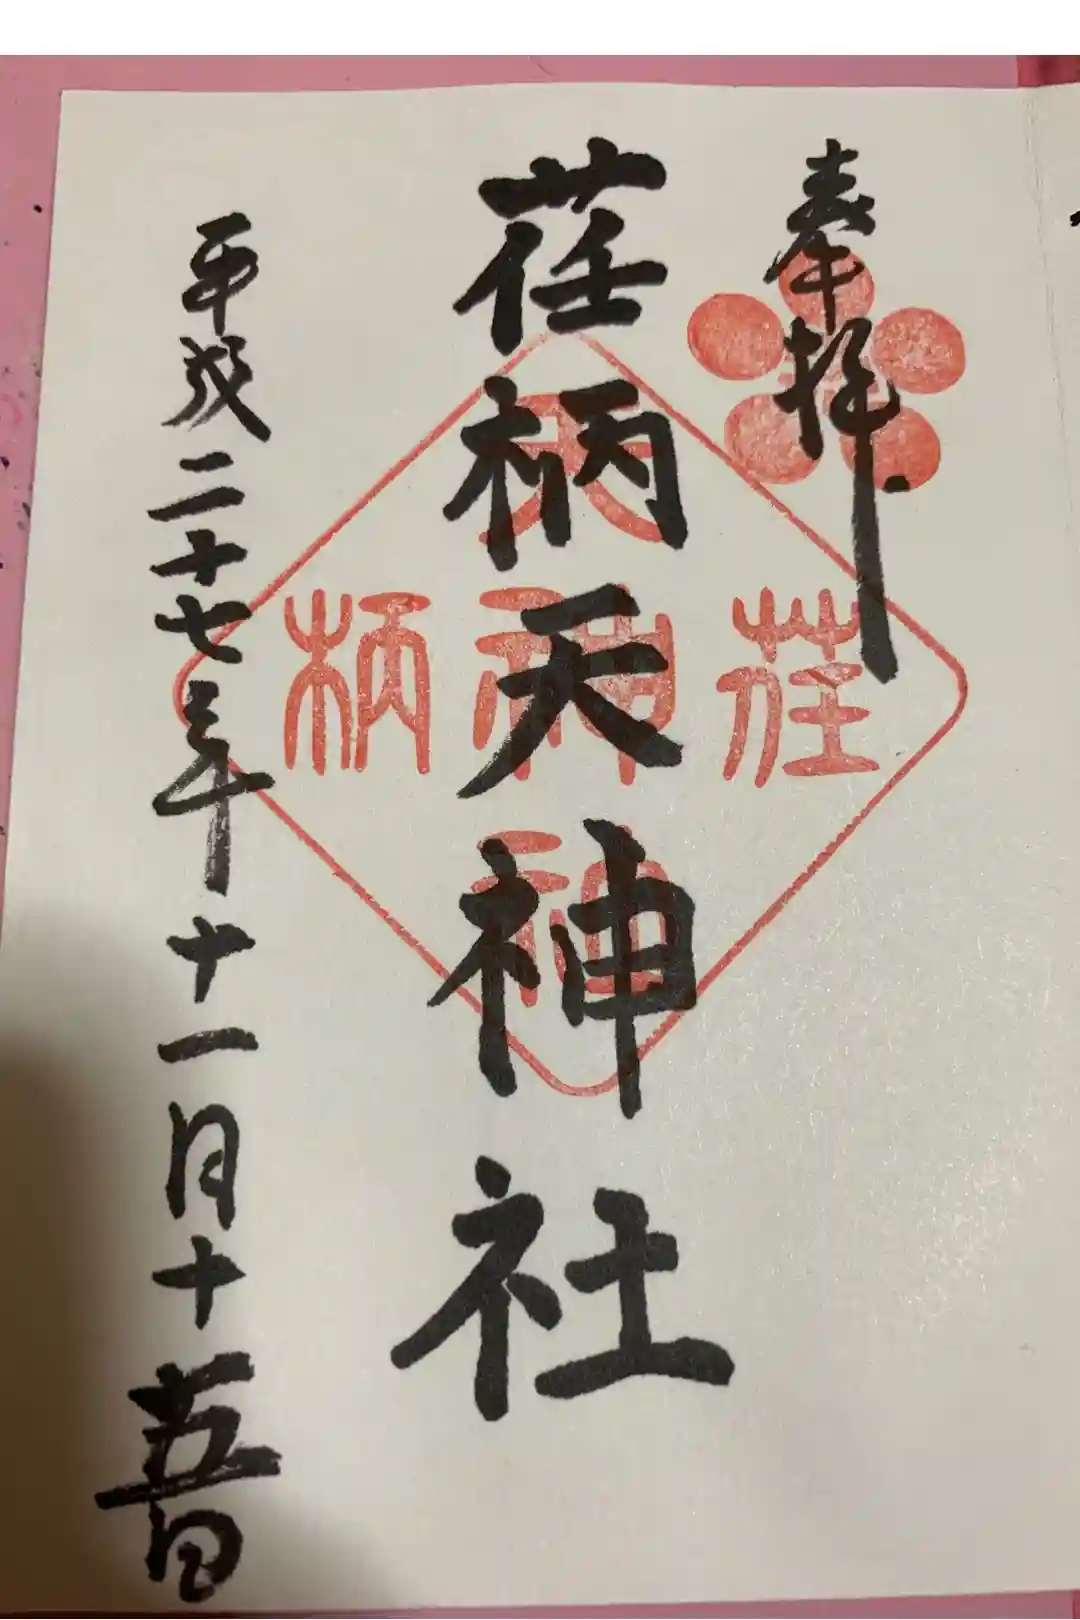 奉拝
荏柄天神社
平成二十七年十一月十五日
荏
天神社
柄